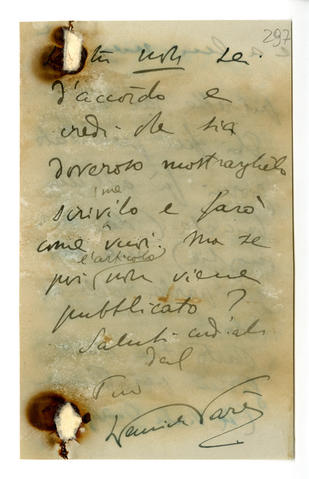 297
Se tu non sei
d'accordo e
credi che sia
doveroso mostrarglielo
scrivilo e farò
me
come vuoi. Ma se
l'articolo
poi non viene
pubblicato?
Saluti cordiali
dal
Tuo